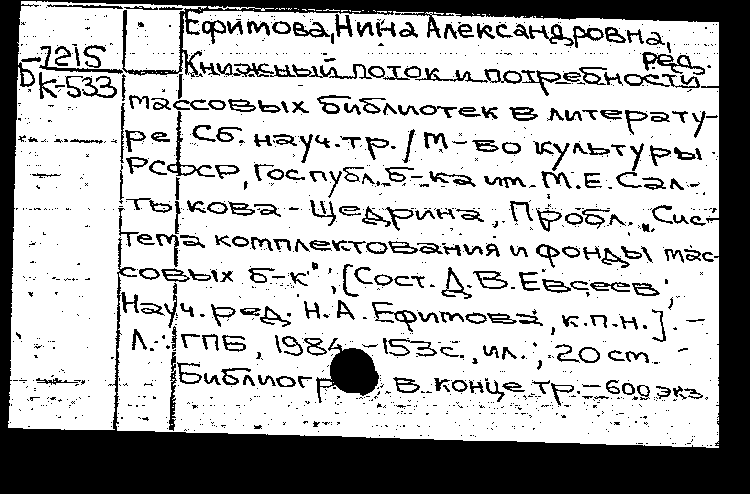 Ефимова, Нина Александровна,
ред.
-7215
D К-533
Книжный поток и потребности
массовых библиотек в литерату-
ре Сб. науч. тр. / М-во культуры
РСФСР, Гос. публ. б-ка им. М.Е. Сал-
тыкова-Щедрина, Пробл. "Сис-
тема комплектования и фонды мас-
совых б-к"; [Сост. Д.В. Евсеев;
Науч. ред. Н.А. Ефимова, к.п.н.]. -
Л.: ГПБ, 1984. -153с., ил.; 20 см. -
Библиогр. в конце тр. - 600 экз.